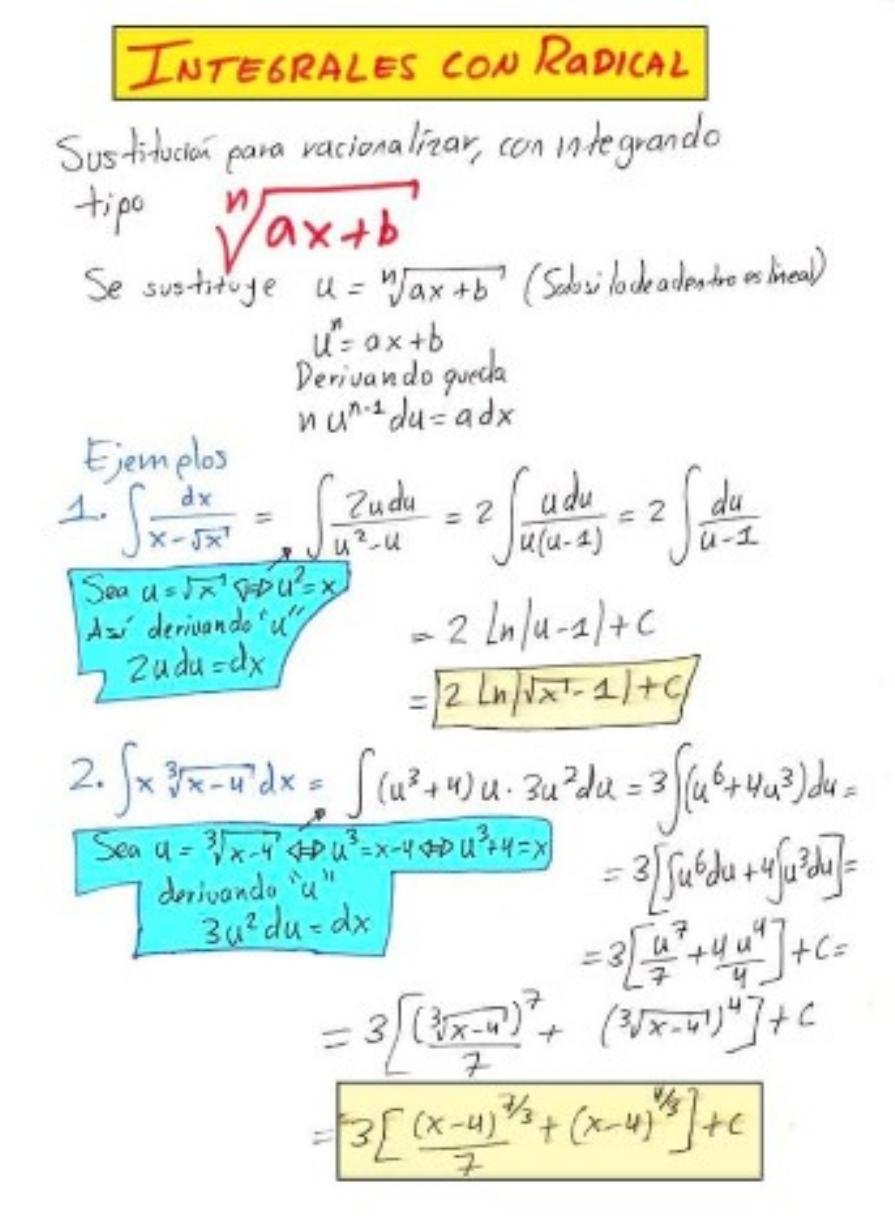 INTEGRALES CON RADICAL
Sustitución para racionalizar, con integrando
tipo ⁿ√(ax+b)
Se sustituye u = ⁿ√(ax+b) (Solo si lo de adentro es lineal)
uⁿ = ax+b
Derivando queda
n uⁿ⁻¹ du = a dx
Ejemplos
1. ∫ dx/(x-√x) = ∫ 2u du/(u²-u) = 2∫ u du/(u(u-1)) = 2∫ du/(u-1)
Sea u=√x ⇔ u²=x
Así derivando "u"
2u du = dx
= 2 Ln|u-1|+C
= 2 Ln|√x-1|+C
2. ∫x ³√(x-4) dx = ∫(u³+4)u · 3u² du = 3∫(u⁶+4u³)du =
Sea u = ³√(x-4) ⇔ u³=x-4 ⇔ u³+4=x
derivando "u"
3u² du = dx
= 3[∫u⁶du + 4∫u³du] =
= 3[u⁷/7 + 4u⁴/4] + C =
= 3[(³√(x-4))⁷/7 + (³√(x-4))⁴] + C
= 3[(x-4)^(7/3)/7 + (x-4)^(4/3)] + C